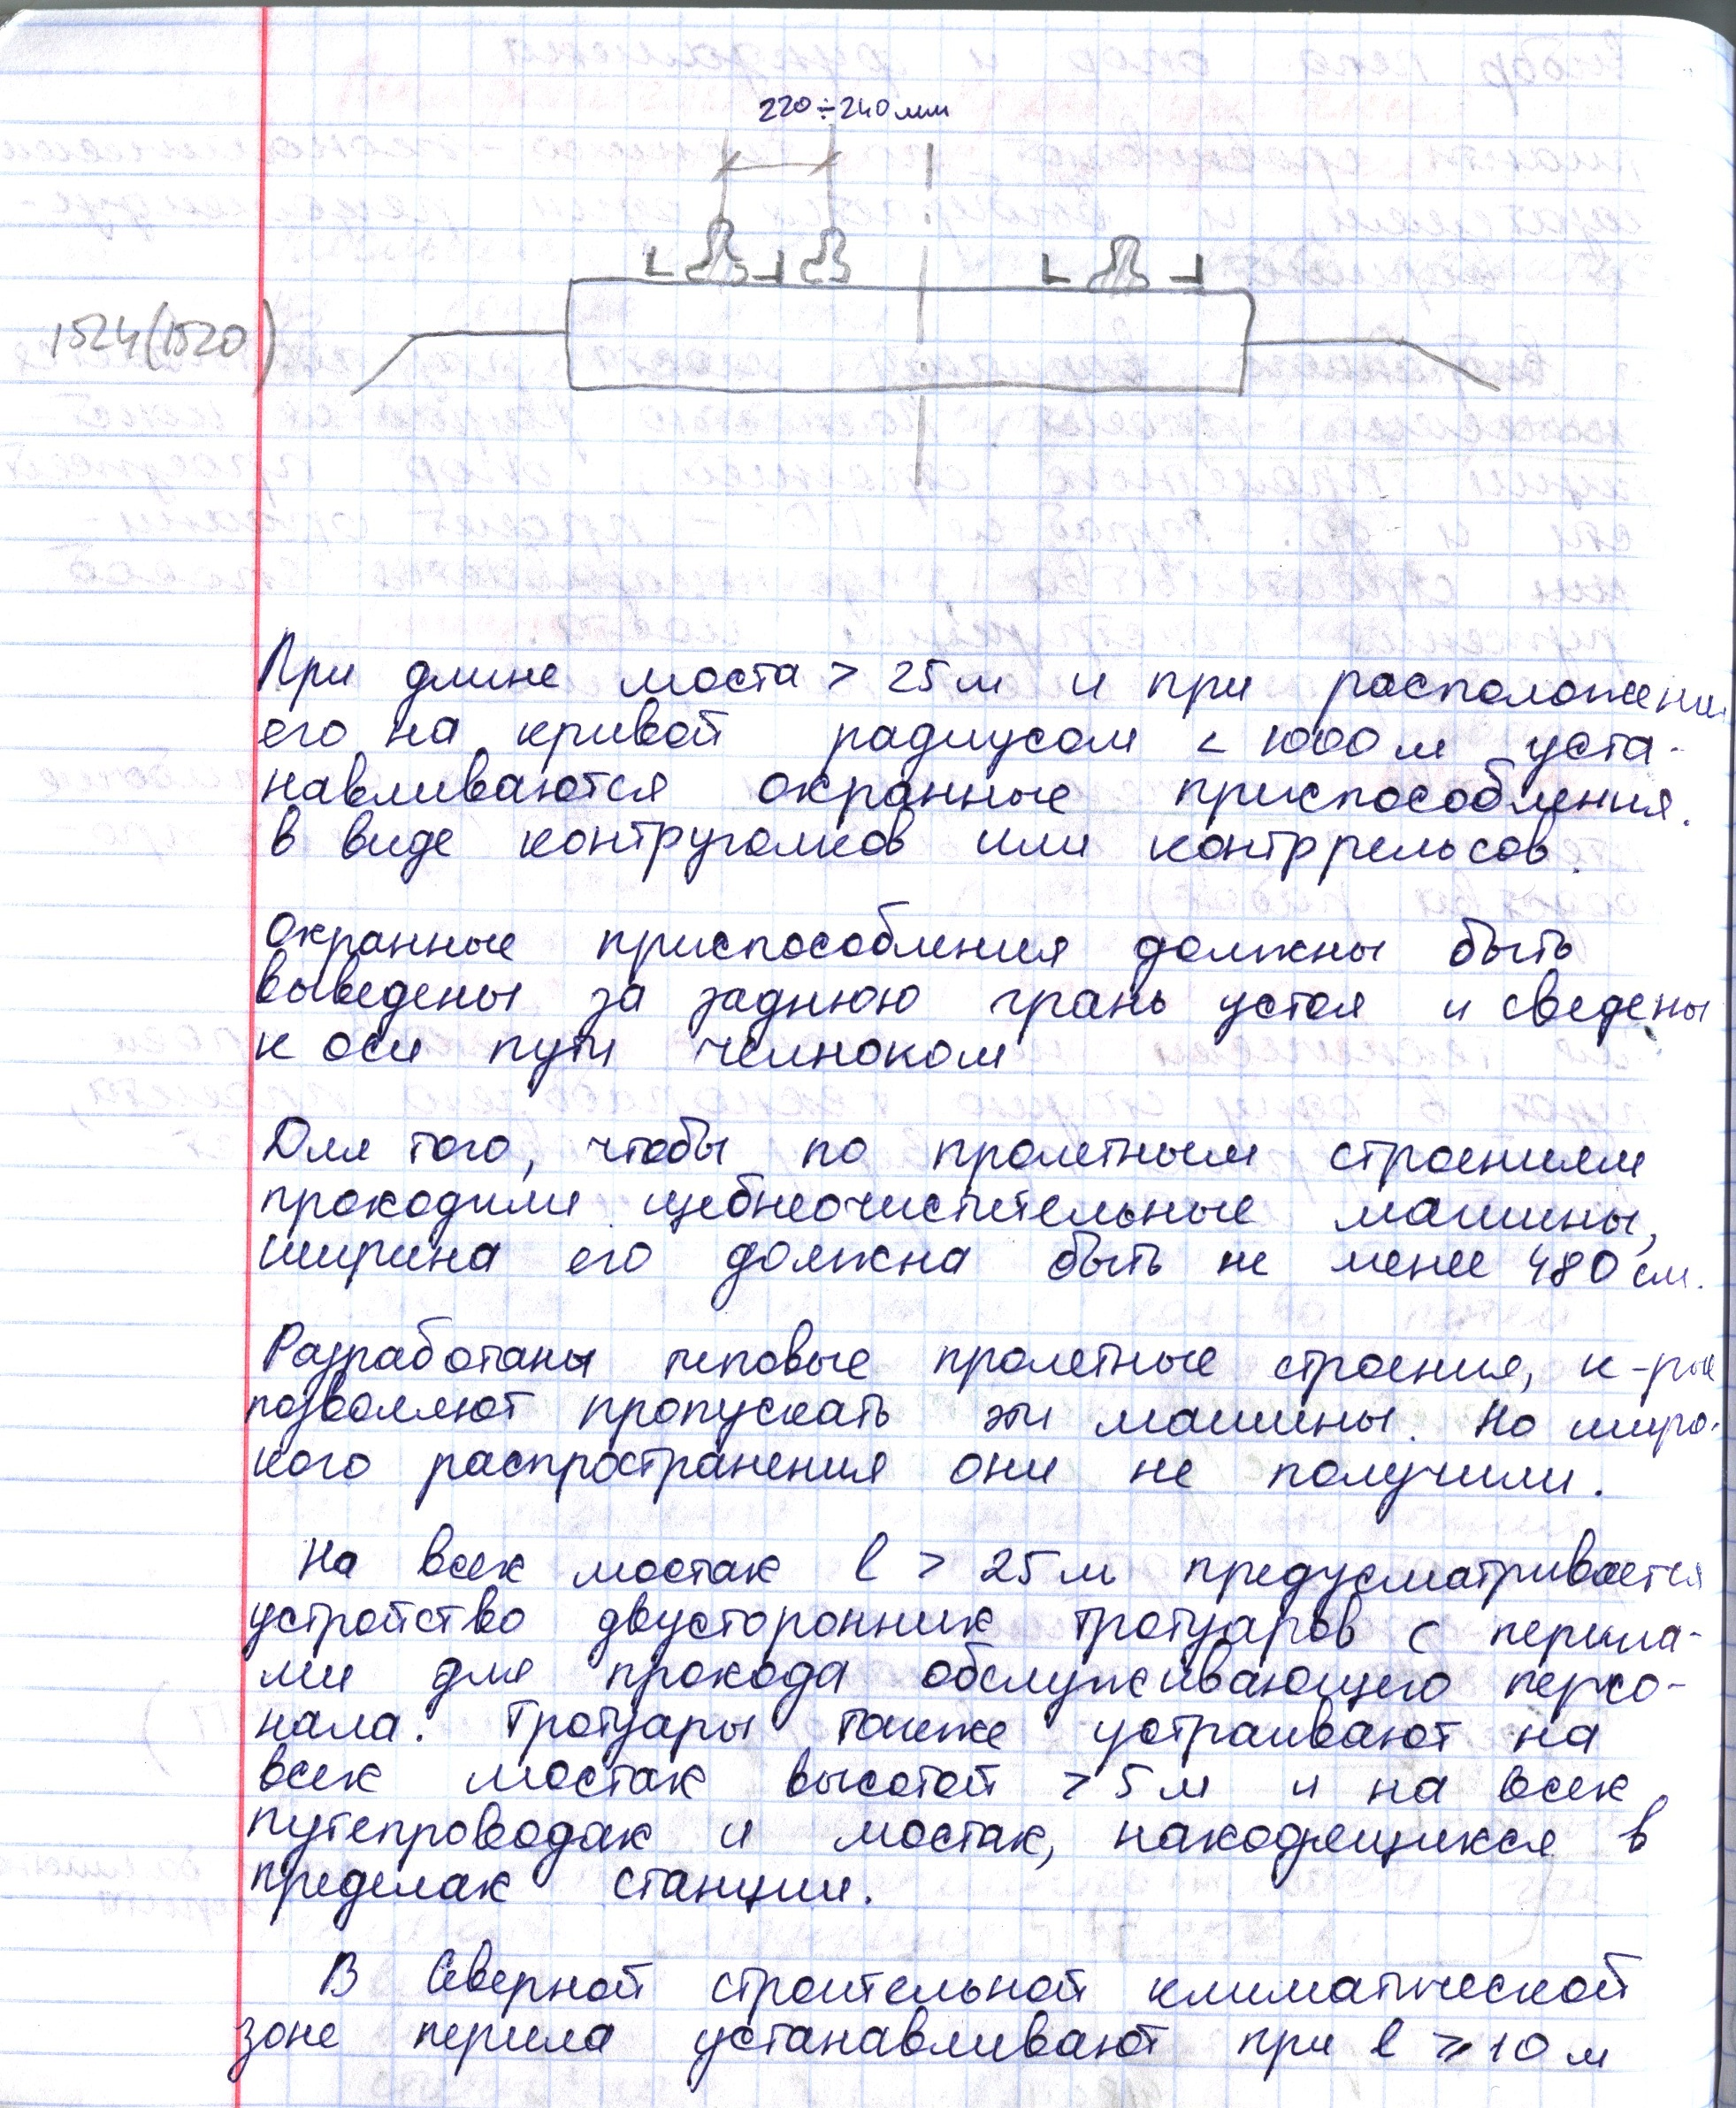 220÷240мм
1524(1520)
При длине моста > 25м и при расположении
его на кривой радиусом < 1000м уста-
навливаются охранные приспособления
в виде контруголков или контррельсов.
Охранные приспособления должны быть
выведены за заднюю грань устоя и сведены
к оси пути челноком
Для того, чтобы по пролетным строениям
проходили щебнеочистительные машины,
ширина его должна быть не менее 480см.
Разработаны типовые пролетные строения, к-рые
позволяют пропускать эти машины. Но широ-
кого распространения они не получили.
На всех мостах l > 25м предусматривается
устройство двусторонних тротуаров с перила-
ми для прохода обслуживающего персо-
нала. Тротуары также устраивают на
всех мостах высотой > 5м и на всех
путепроводах и мостах, находящихся в
пределах станции.
В Северной строительной климатической
зоне перила устанавливают при l ≥ 10м